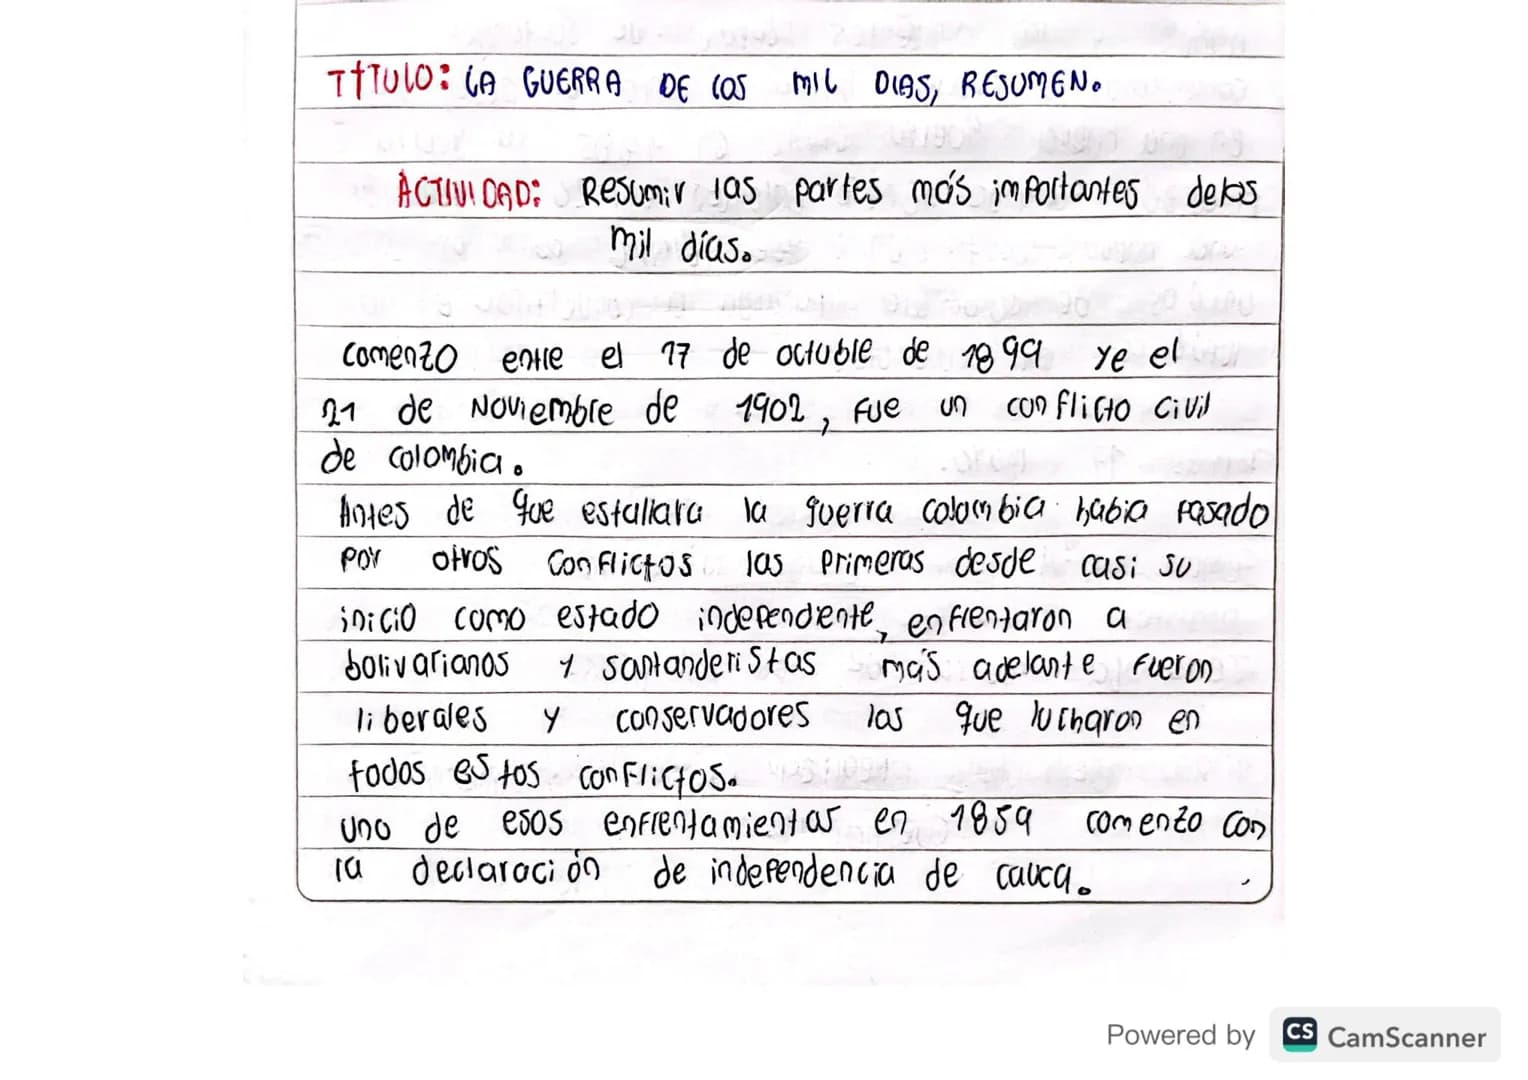 TÍTULO: LA GUERRA DE LOS MIL DIAS, RESUMEN.
ACTIVIDAD: Resumir las partes más importantes de los
mil días.
comenzo entre el 17 de octubre de 1899 ye el
21 de Noviembre de 1902, fue un conflicto civil
de colombia.
Antes de que estallara la guerra colombia habia pasado
por otros conflictos las primeras desde casi su
inicio como estado independiente, enfrentaron a
bolivarianos y santanderistas más adelante fueron
liberales y conservadores los que lucharon en
todos estos conflictos.
uno de esos enfrentamientos en 1859 comenzo con
la declaración de independencia de cauca.
Powered by CS CamScanner